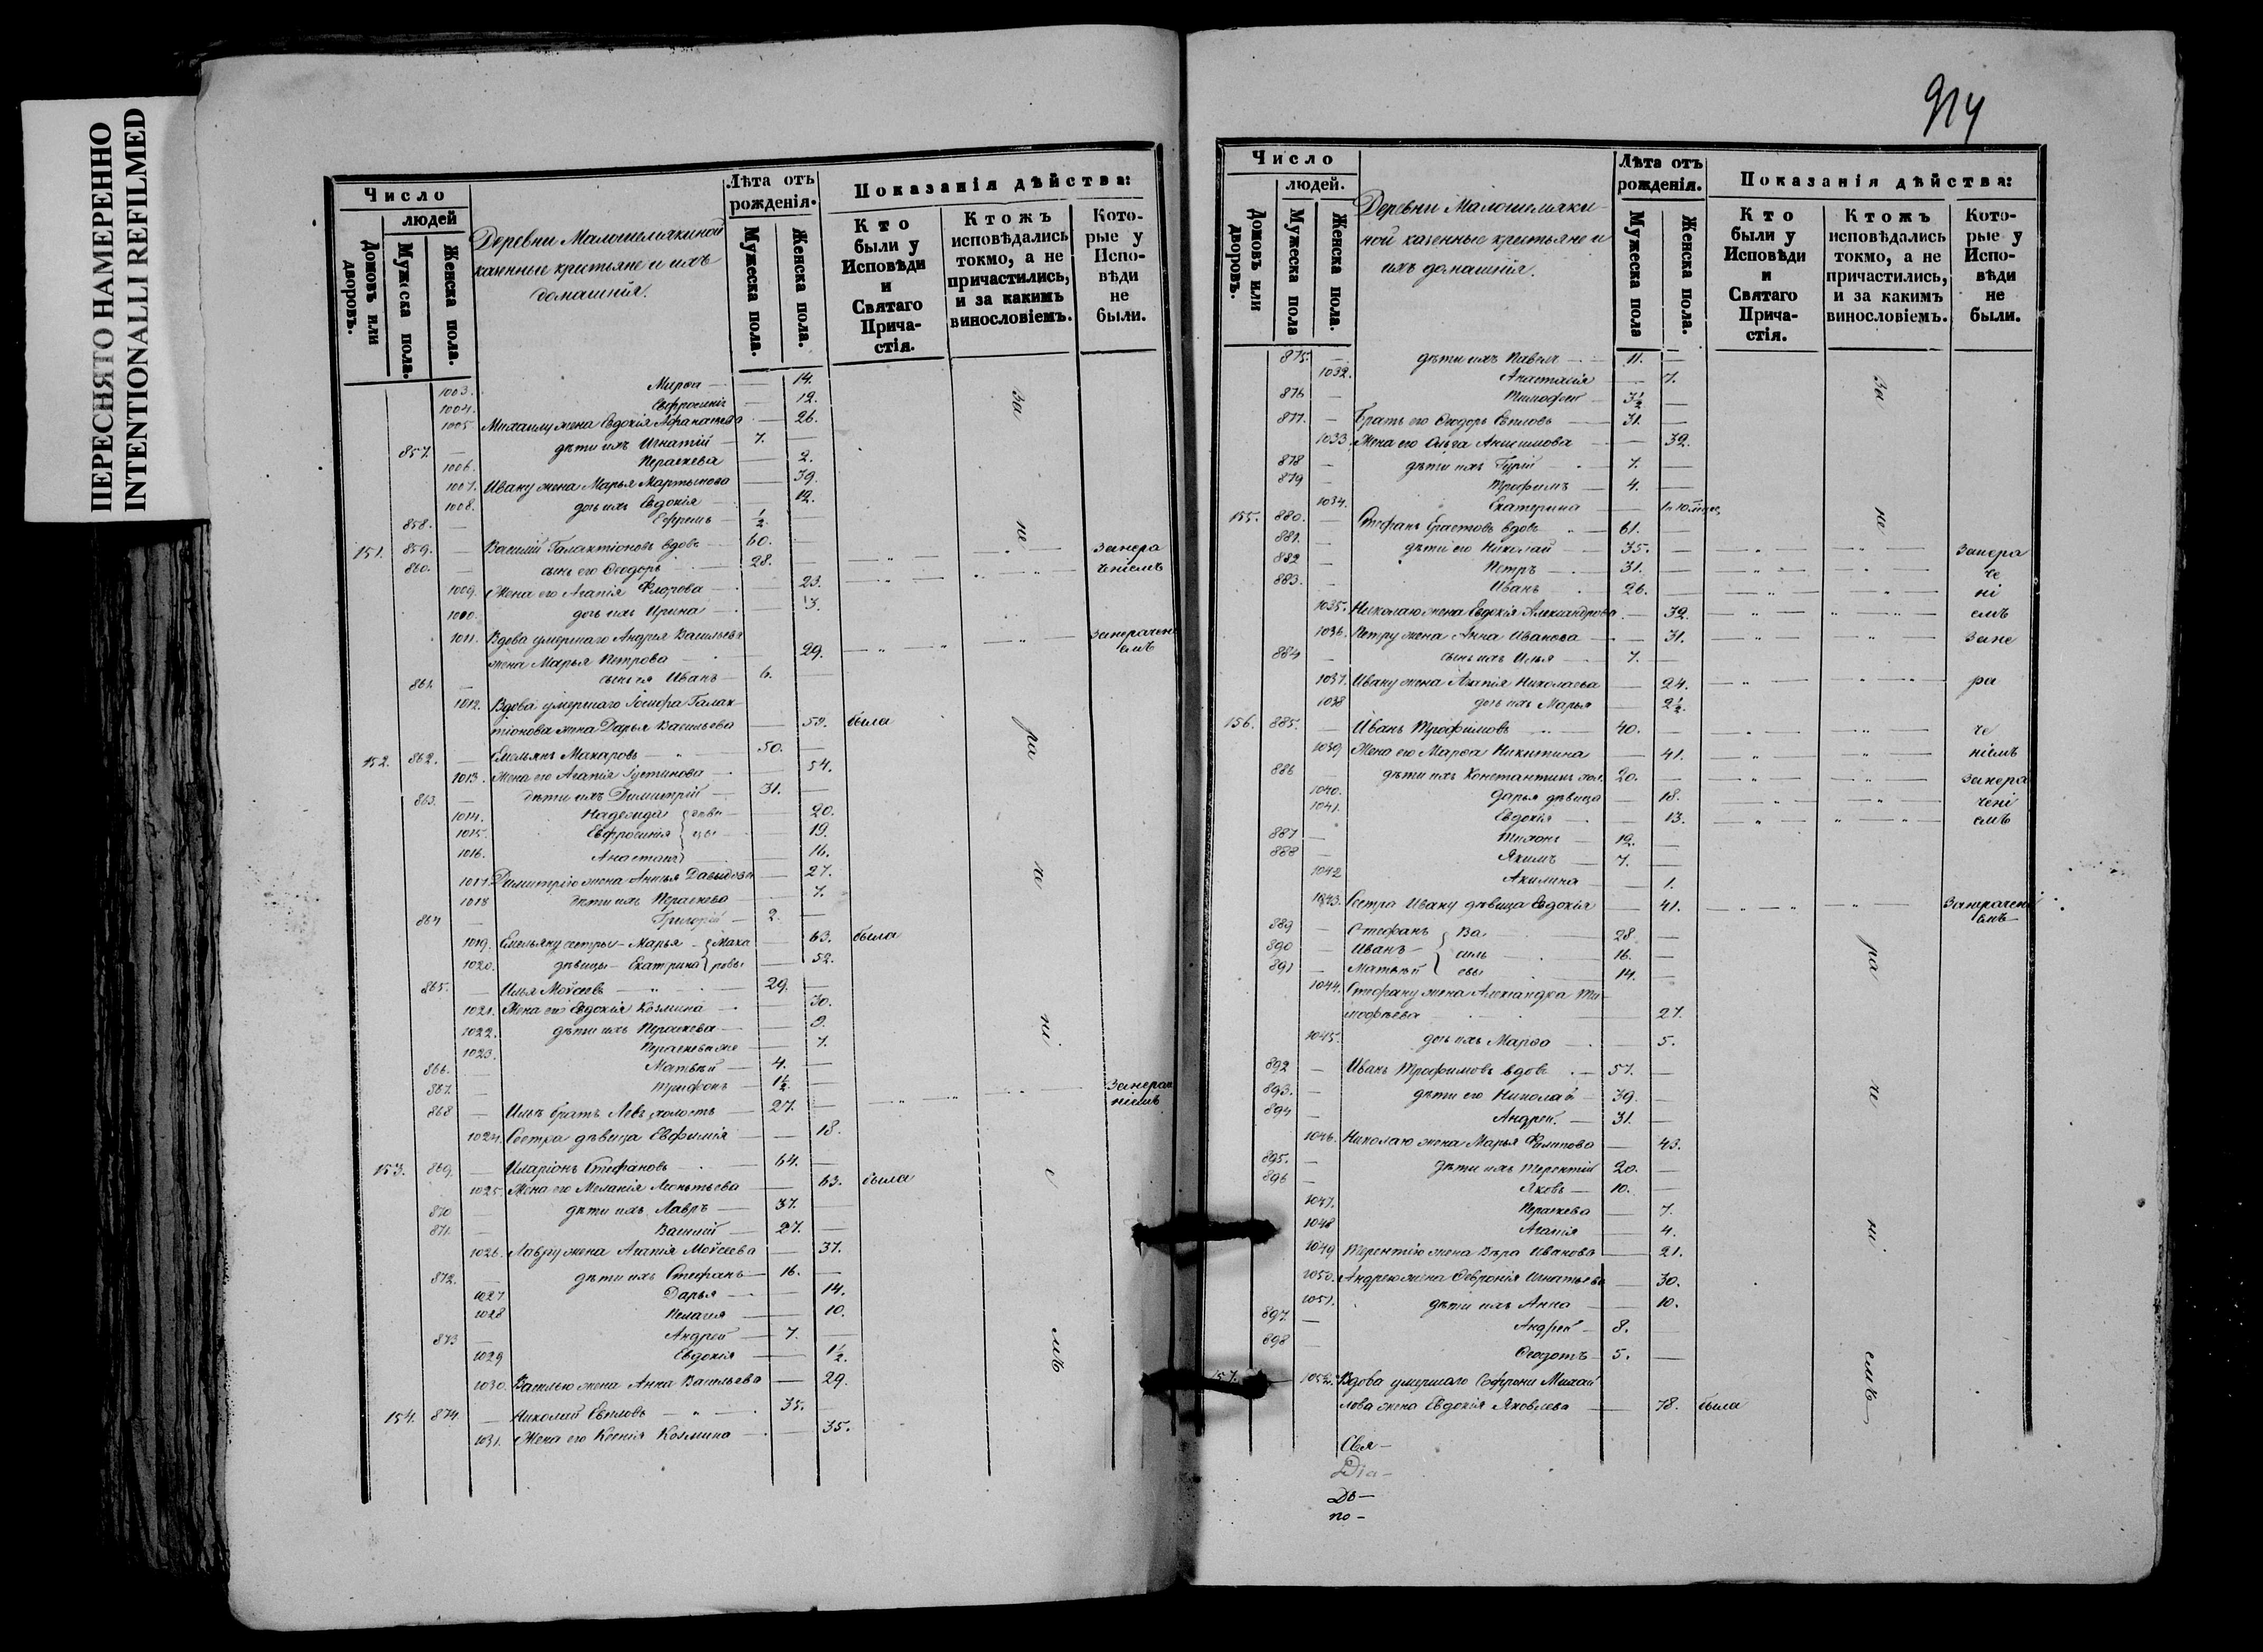 ПЕРЕСНЯТО НАМЕРЕННО
INTENTIONALLI REFILMED
Число
людей
Домовъ или дворовъ.
Мужеска пола.
Женска пола.
Деревни Малошемякиной
казенные крестьяне и ихъ
домашнія.
Лѣта отъ рожденія.
Мужеска пола.
Женска пола.
Показанія дѣйства:
Кто были у Исповѣди и Святаго Причастія.
Ктожъ исповѣдались токмо, а не причастились, и за какимъ винословіемъ.
Которые у Исповѣди не были.
1003. Марѳа — 14.
1004. Евфросинія — 12.
1005. Михаилу жена Евдокія Афанасьева — 26.
857. — дѣти ихъ Игнатій — 7. —
1006. Параскева — 2.
1007. Ивану жена Марья Мартынова — 39.
1008. дочь ихъ Евдокія — 12.
858. — Ефремъ — ½.
151. 859. — Василій Галактіоновъ вдовъ — 60. —
860. — сынъ его Ѳеодоръ — 28.
1009. Жена его Агапія Флорова — 23.
1010. дочь ихъ Ирина — 3.
1011. Вдова умершаго Андрея Васильева
жена Марья Петрова — 29.
861. — сынъ ея Иванъ — 6. —
1012. Вдова умершаго Іосифа Галак
тіонова жена Дарья Васильева — 50. была
152. 862. — Емельянъ Макаровъ — 50. —
1013. Жена его Агапія Іустинова — 54.
863. — дѣти ихъ Димитрій — 31. —
1014. Надежда — 20.
1015. Евфросинія — 19.
1016. Анастасія — 16.
1017. Димитрію жена Анисья Давыдова — 27.
1018 дѣти ихъ Параскева — 7.
864 — Григорій — 2. —
1019. Емельяну сестры — Марья — Мака — 63. была
1020. дѣвицы — Екатерина ровы — 52.
865. — Илья Моѵсеевъ — 29. —
1021. Жена его Евдокія Козмина — 30.
1022. дѣти ихъ Параскева — 9.
1023. Параскева же — 7.
866. — Матвѣй — 4. —
867. — Трифонъ — 1½. —
868 — Ильѣ братъ Левъ холостъ — 27. —
1024. Сестра дѣвица Евфимія — 18.
153. 869. — Иларіонъ Стефановъ — 64. —
1025. Жена его Меланія Леонтьева — 63. была
870 — дѣти ихъ Лавръ — 37. —
871. — Василій — 27. —
1026. Лавру жена Агапія Моѵсеева — 37.
872. — дѣти ихъ Стефанъ — 16. —
1027 Дарья — 14.
1028 Пелагея — 10.
873 — Андрей — 7. —
1029 Евдокія — 1½.
1030. Василью жена Анна Васильева — 29.
154. 874. — Николай Евпловъ — 35. —
1031. Жена его Ксенія Козмина — 35.
914
Число
людей.
Домовъ или дворовъ.
Мужеска пола
Женска пола.
Деревни Малошемяки-
ной казенные крестьяне и
ихъ домашнія.
Лѣта отъ рожденія.
Мужеска пола
Женска пола.
Показанія дѣйства:
Кто были у Исповѣди и Святаго Причастія.
Ктожъ исповѣдались токмо, а не причастились, и за какимъ винословіемъ.
Которые у Исповѣди не были.
875. — дѣти ихъ Павелъ — 11. —
1032. Анастасія — 7.
876 — Тимофей — 3½ —
877. — Братъ его Ѳеодоръ Евпловъ — 31. —
1033. Жена его Ольга Анисимова — 32.
878 — дѣти ихъ Гурій — 7. —
879 — Трофимъ — 4. —
1034. Екатерина —
155. 880. — Стефанъ вдовъ — 61. —
881. — дѣти его Николай — 35. —
882 — Петръ — 31. —
883. — Иванъ — 26. —
1035. Николаю жена Евдокія Александрова — 32.
1036. Петру жена Анна Иванова — 31.
884 — сынъ ихъ Илья — 7. —
1037. Ивану жена Агапія Николаева — 24.
1038 дочь ихъ Марья — 2½.
156. 885. — Иванъ Трофимовъ — 40. —
1039 Жена его Марѳа Никитина — 41.
886 — дѣти ихъ Константинъ хол. 20. —
1040. Дарья дѣвица — 18.
1041. Евдокія — 13.
887 — Тихонъ — 12. —
888 — Якимъ — 7. —
1042 Акилина — 1.
1043. Сестра Ивану дѣвица Евдокія — 41.
889 — Стефанъ Ва 28. —
890 — Иванъ — силь 16. —
891 — Матвѣй евы 14. —
1044. Стефану жена Александра Ти-
мофѣева — 27.
1045. дочь ихъ Марѳа — 5.
892 — Иванъ Трофимовъ вдовъ — 57. —
893. — дѣти его Николай — 39. —
894 — Андрей. — 31. —
1046. Николаю жена Марья Филипова — 43.
895. — дѣти ихъ Терентій 20. —
896 — Яковъ — 10. —
1047. Параскева — 7.
1048 Агапія — 4.
1049 Терентію жена Вѣра Иванова — 21.
1050. Андрею жена Ѳевронія Игнатьева — 30.
1051. дѣти ихъ Анна — 10.
897. — Андрей — 8. —
898 — Ѳеодотъ — 5. —
157. 1052. Вдова умершаго Софрона Михай
лова жена Евдокія Яковлева — 78. была
Свя-
Діа-
Дь-
по-